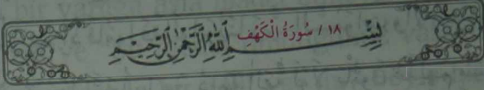 ١٨ / سُورَةُ الْكَهْفِ
بِسْمِ اللهِ الرَّحْمٰنِ الرَّحِيْمِ